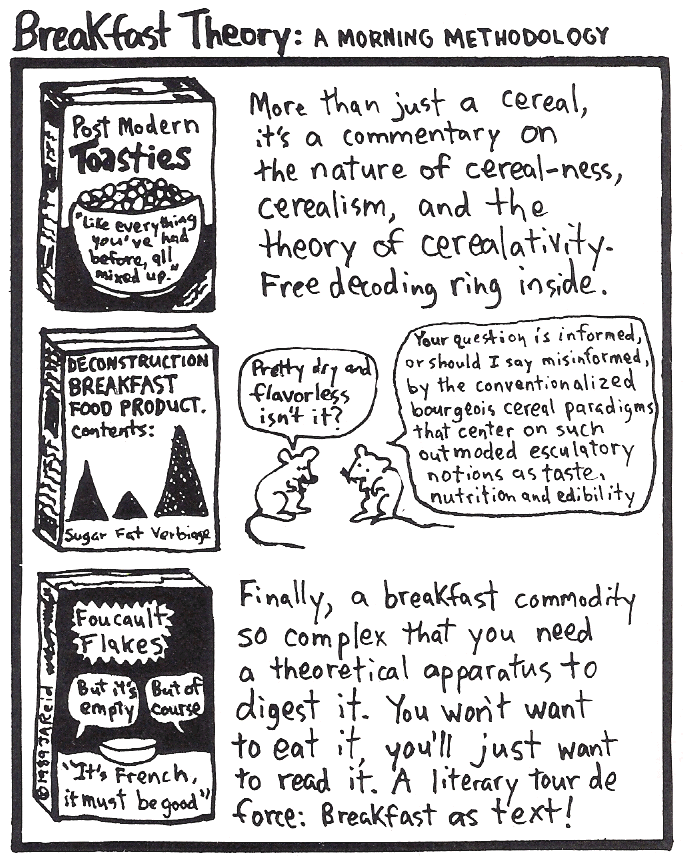 Breakfast Theory: A MORNING METHODOLOGY
Post Modern
Toasties
"Like everything
you've had
before, all
mixed up."
More than just a cereal,
it's a commentary on
the nature of cereal-ness,
cerealism, and the
theory of cerealativity.
Free decoding ring inside.
DECONSTRUCTION
BREAKFAST
FOOD PRODUCT.
contents:
Sugar Fat Verbiage
Pretty dry and
flavorless
isn't it?
Your question is informed,
or should I say misinformed,
by the conventionalized
bourgeois cereal paradigms
that center on such
outmoded esculatory
notions as taste,
nutrition and edibility
Foucault
Flakes
But it's
empty
But of
course
"It's French,
it must be good"
©1989 JA Reid
Finally, a breakfast commodity
so complex that you need
a theoretical apparatus to
digest it. You won't want
to eat it, you'll just want
to read it. A literary tour de
force: Breakfast as text!